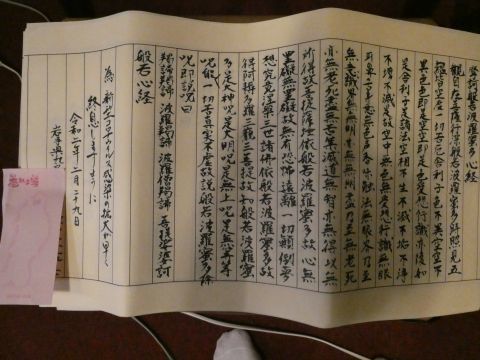 摩訶般若波羅蜜多心経
観自在菩薩行深般若波羅蜜多時照見五
蘊皆空度一切苦厄舎利子色不異空空不
異色色即是空空即是色受想行識亦復如
是舎利子是諸法空相不生不滅不垢不浄
不増不減是故空中無色無受想行識無眼
耳鼻舌身意無色声香味触法無眼界乃至
無意識界無無明亦無無明尽乃至無老死
亦無老死尽無苦集滅道無智亦無得以無
所得故菩提薩埵依般若波羅蜜多故心無
罣礙無罣礙故無有恐怖遠離一切顛倒夢
想究竟涅槃三世諸仏依般若波羅蜜多故
得阿耨多羅三藐三菩提故知般若波羅蜜
多是大神呪是大明呪是無上呪是無等等
呪能除一切苦真実不虚故説般若波羅蜜多
呪即説呪曰
羯諦羯諦 波羅羯諦 波羅僧羯諦 菩提娑婆訶
般若心経
為 新型コロナウィルス感染の拡大が早く
終息しますように
令和二年二月二十九日
岩手県